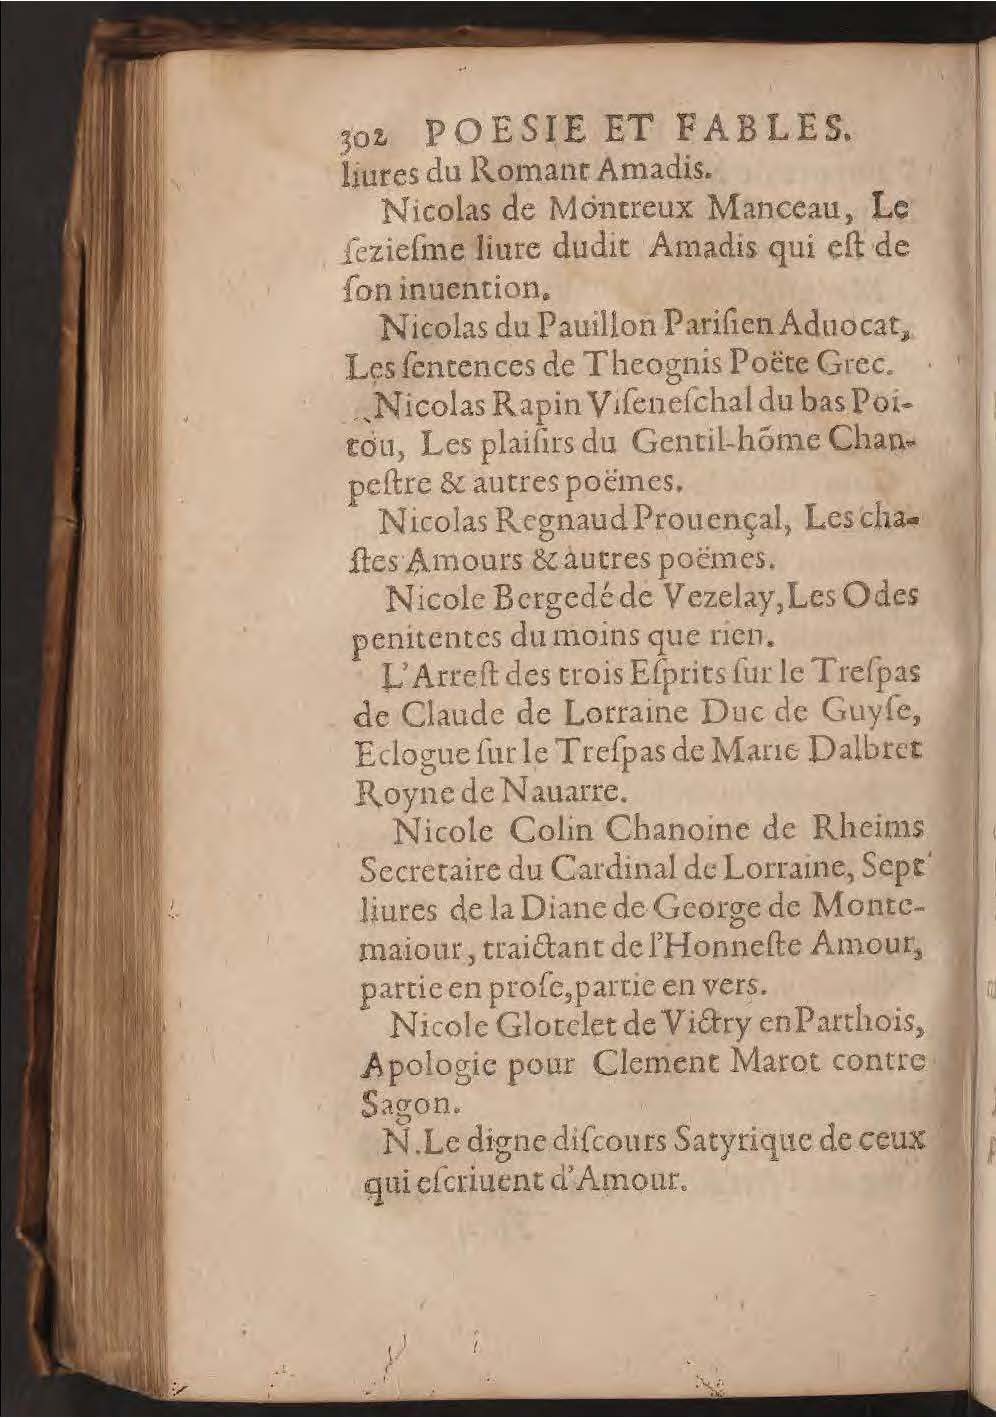 302 POESIE ET FABLES.
liures du Romant Amadis.
Nicolas de Montreux Manceau, Le
ſezieſme liure dudit Amadis qui eſt de
ſon inuention.
Nicolas du Pauillon Pariſien Aduocat,
Les ſentences de Theognis Poëte Grec.
Nicolas Rapin Viſeneſchal du bas Poi-
tou, Les plaiſirs du Gentil-hõme Chan-
peſtre & autres poëmes.
Nicolas Regnaud Prouençal, Les cha-
ſtes Amours & autres poëmes.
Nicole Bergedé de Vezelay, Les Odes
penitentes du moins que rien.
L'Arreſt des trois Eſprits ſur le Treſpas
de Claude de Lorraine Duc de Guyſe,
Eclogue ſur le Treſpas de Marie Dalbret
Royne de Nauarre.
Nicole Colin Chanoine de Rheims
Secretaire du Cardinal de Lorraine, Sept
liures de la Diane de George de Monte-
maiour, traictant de l'Honneſte Amour,
partie en proſe, partie en vers.
Nicole Glotelet de Victry en Parthois,
Apologie pour Clement Marot contre
Sagon.
N. Le digne diſcours Satyrique de ceux
qui eſcriuent d'Amour.